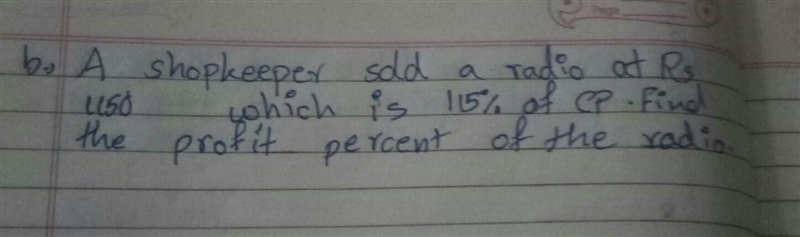 b. A shopkeeper sold a radio at Rs
1150 which is 115% of CP. Find
the profit percent of the radio.